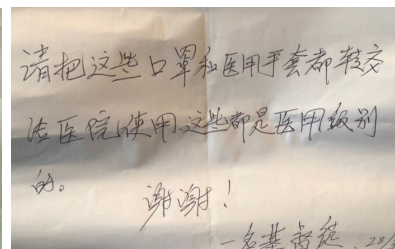 请把这些口罩和医用手套都转交
给医院使用.这些都是医用级别
的。
谢谢！
一名基督徒. 28/